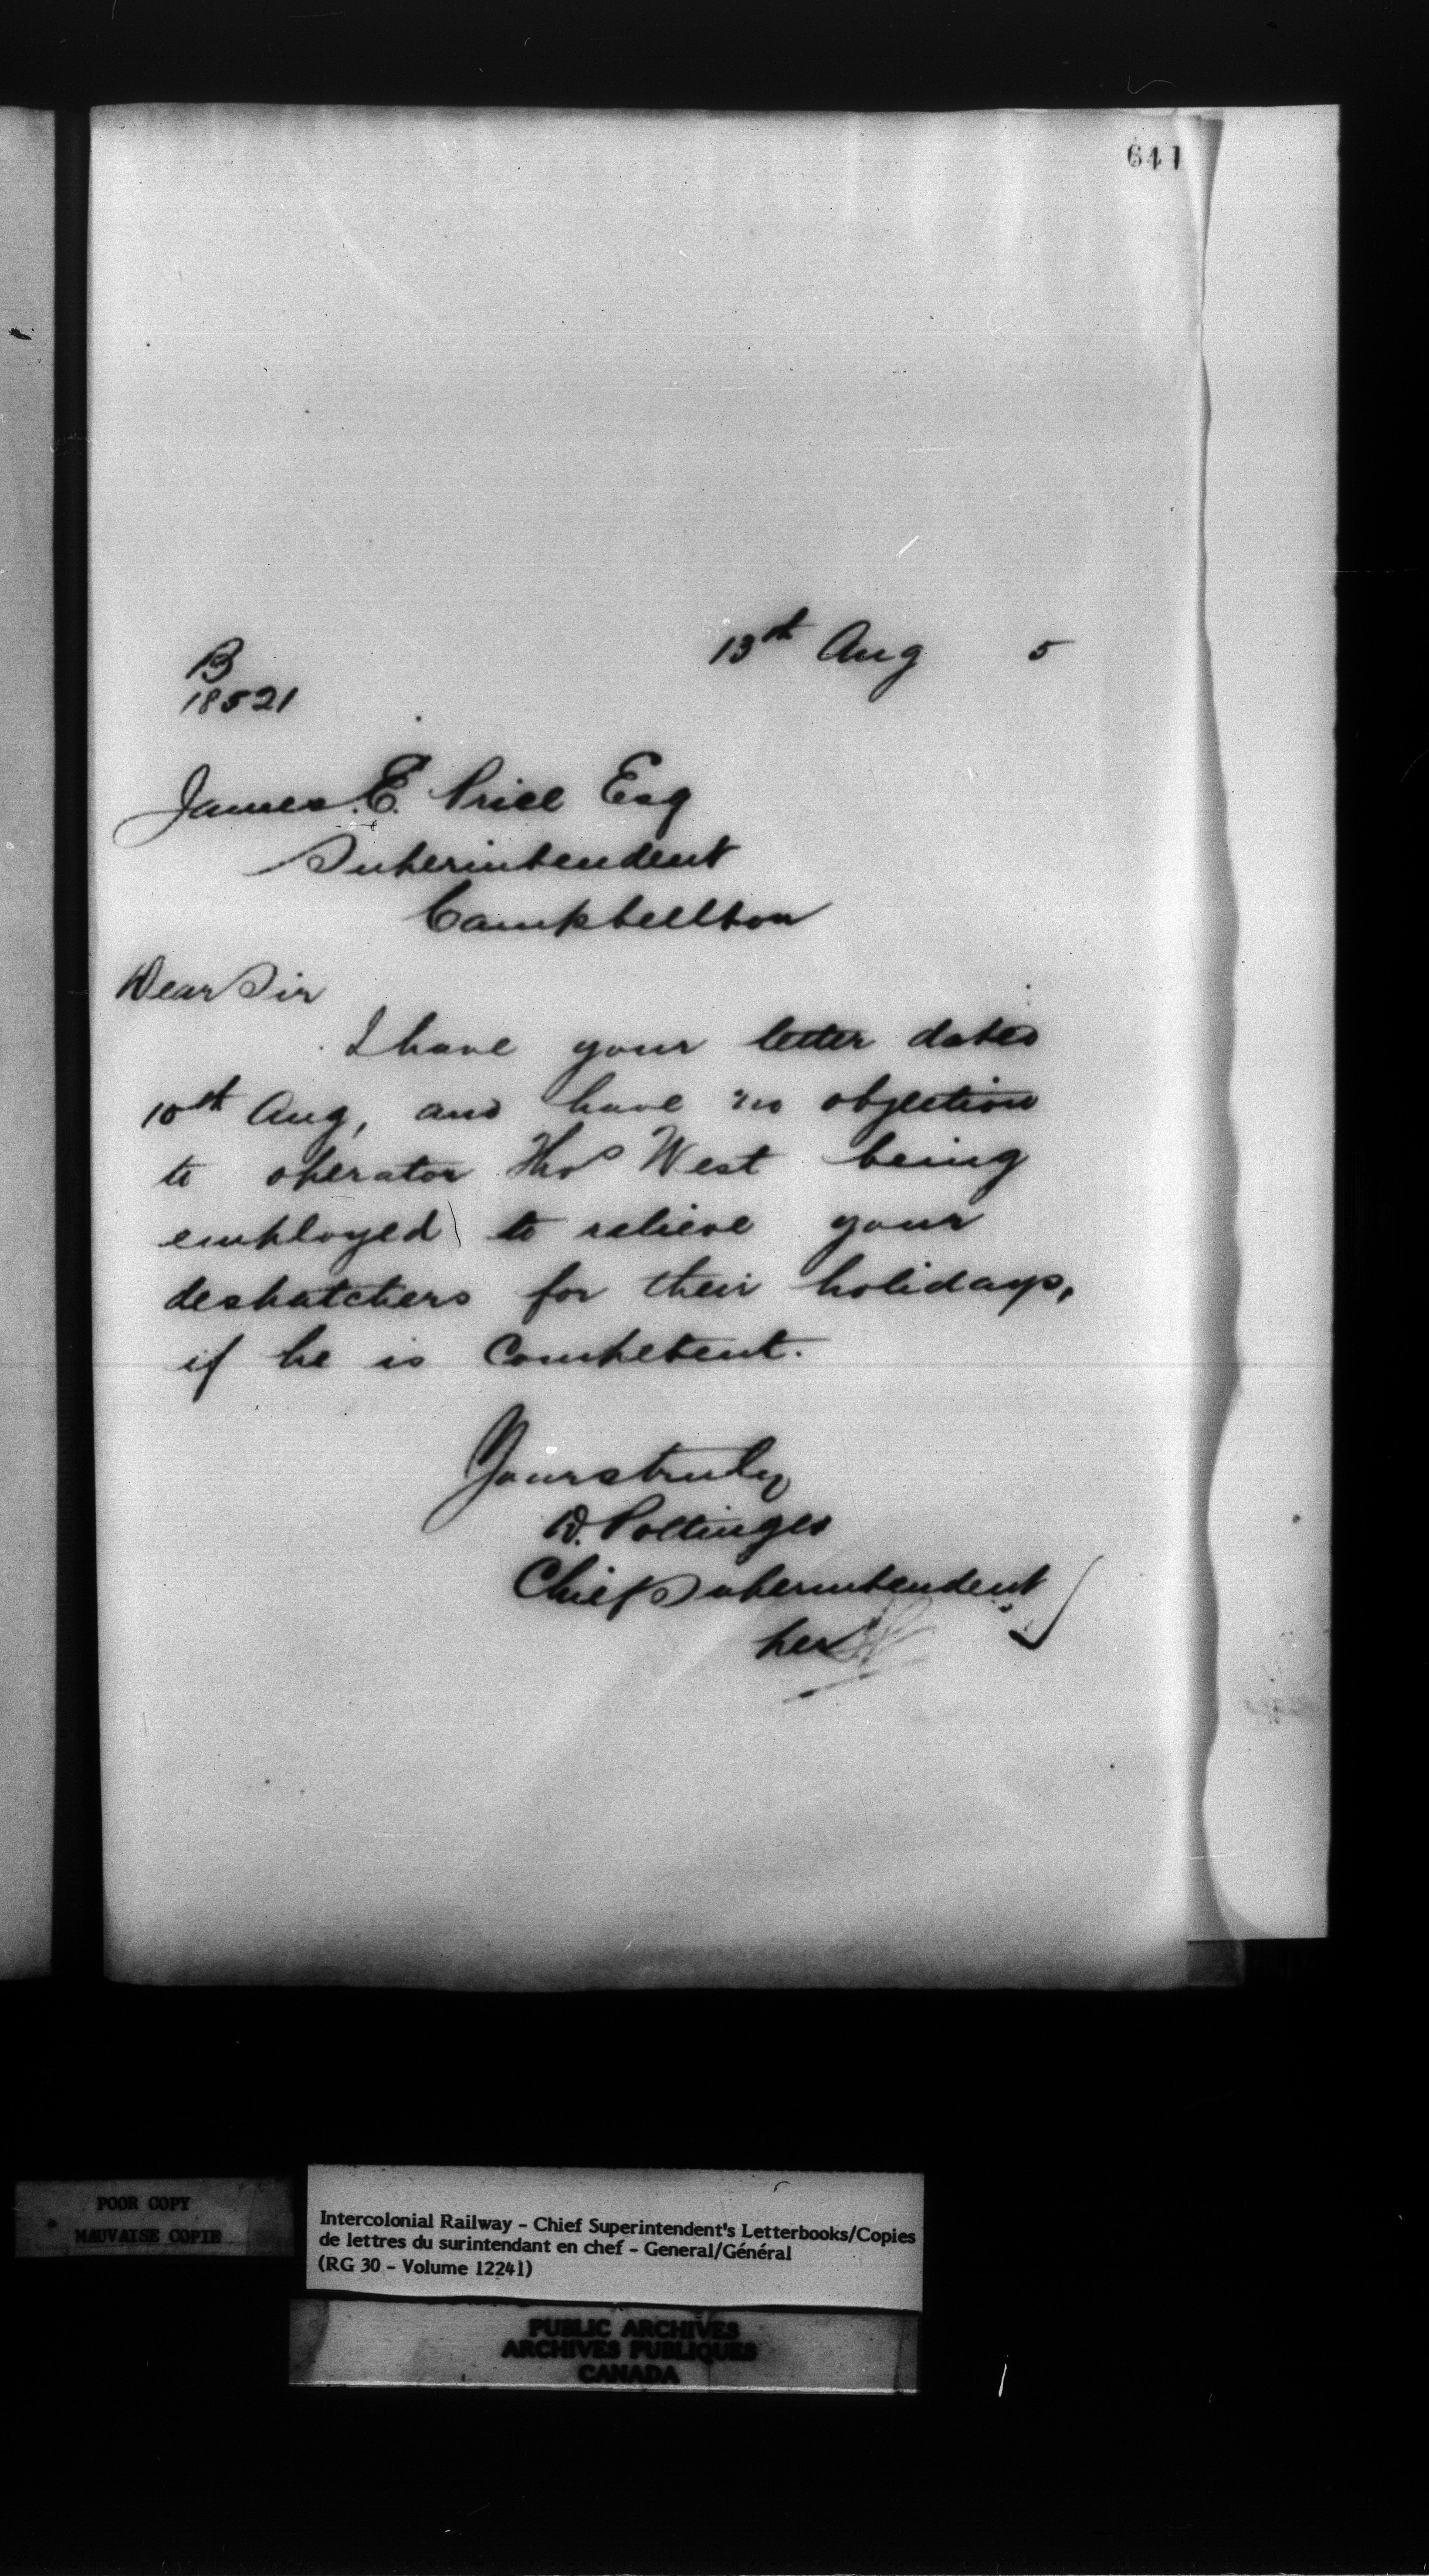 641
13th Aug 5
B
18521
James E. Price Esq
Superintendent
Campbellton
Dear Sir
I have your letter dated
10th Aug, and have no objection
to operator Thos West being
employed to relieve your
despatchers for their holidays,
if he is Competent.
Yours truly
D. Pottinger
Chief Superintendent
per
POOR COPY
MAUVAISE COPIE
Intercolonial Railway - Chief Superintendent's Letterbooks/Copies
de lettres du surintendant en chef - General/Général
(RG 30 - Volume 12241)
PUBLIC ARCHIVES
ARCHIVES PUBLIQUES
CANADA